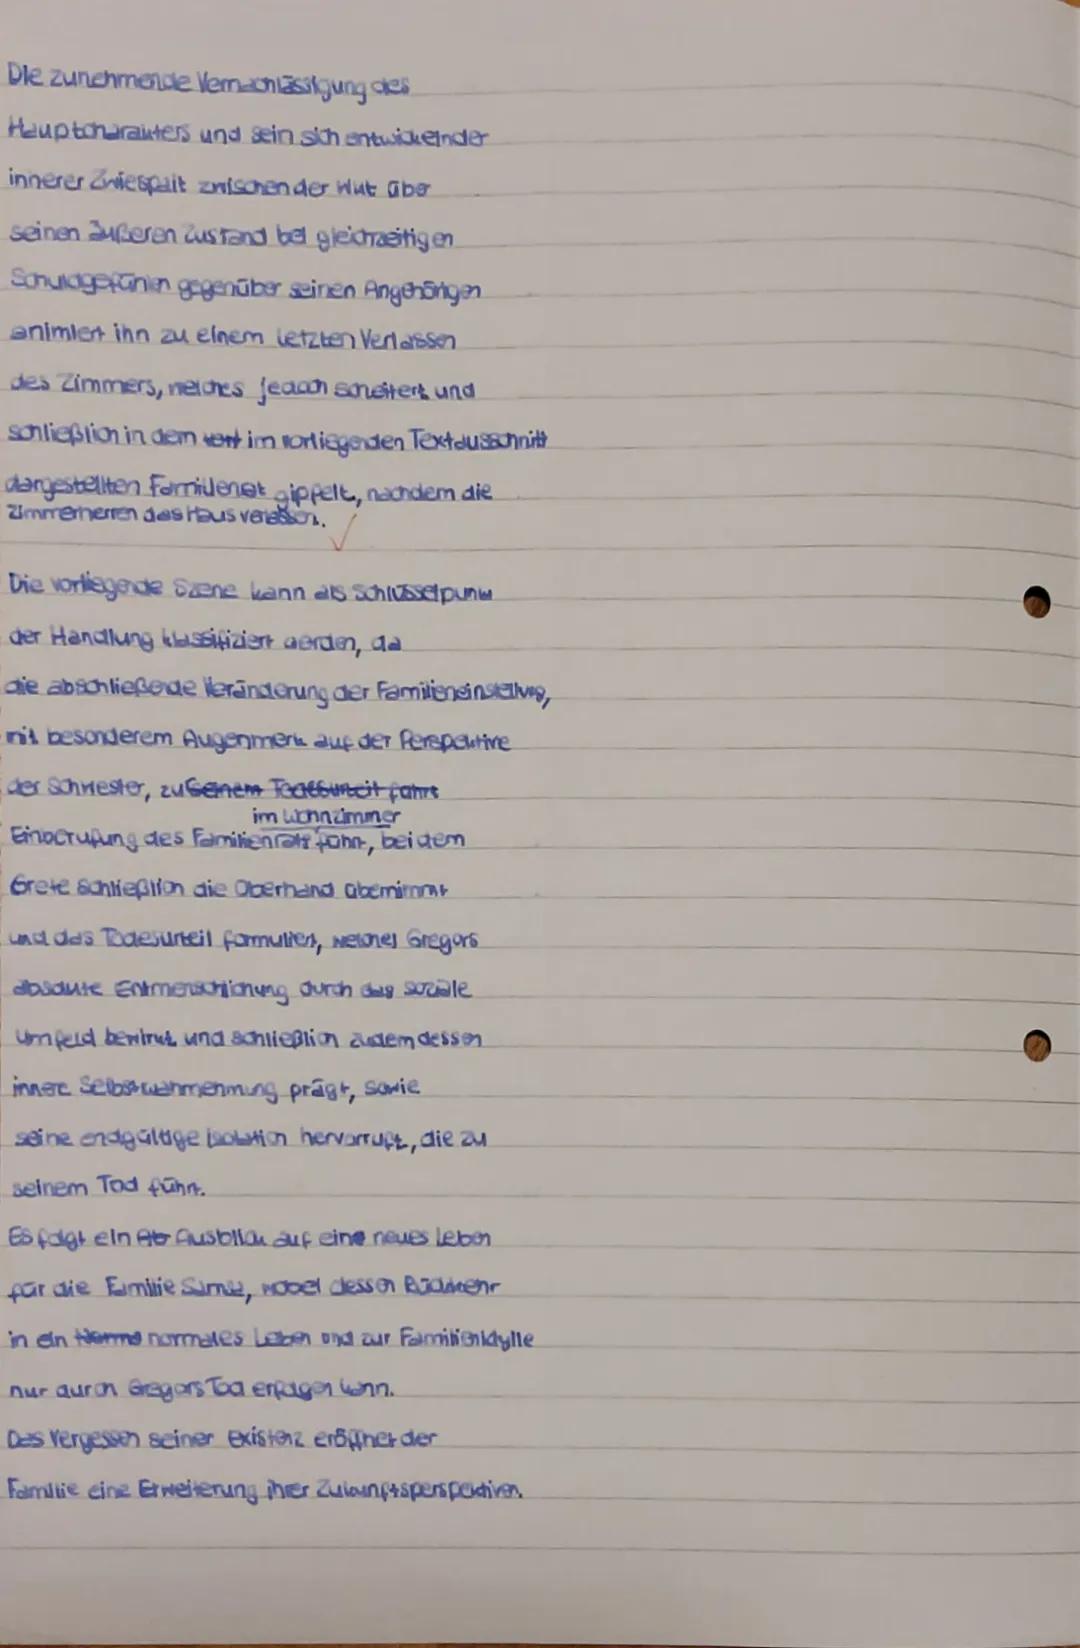 Die zunehmende Vernachlässigung des
Hauptcharakters und sein sich entwickelnder
innerer Zwiespalt zwischen der Wut über
seinen äußeren Zustand bei gleichzeitigen
Schuldgefühlen gegenüber seinen Angehörigen
animiert ihn zu einem letzten Verlassen
des Zimmers, welches jedoch scheitert und
schließlich in dem vorl im vorliegenden Textausschnitt
dargestellten Familienrat gippelt, nachdem die
Zimmerherren das Haus verlassen.
Die vorliegende Szene kann als Schlüsselpunkt
der Handlung klassifiziert werden, da
die abschließende Veränderung der Familieneinstellung,
mit besonderem Augenmerk auf der Perspektive
der Schwester, zu seinem Todesurteil führt
im Wohnzimmer
Einberufung des Familienrats führt, bei dem
Grete schließlich die Oberhand übernimmt
und das Todesurteil formuliert, welches Gregors
absolute Entmenschlichung durch das soziale
Umfeld bewirkt und schließlich zudem dessen
innere Selbstwahrnehmung prägt, sowie
seine endgültige Isolation hervorruft, die zu
seinem Tod führt.
Es folgt ein Ab Ausblick auf eine neues Leben
für die Familie Samsa, wobei dessen Rückkehr
in ein normales Leben und zur Familienidylle
nur durch Gregors Tod erfolgen kann.
Das Vergessen seiner Existenz eröffnet der
Familie eine Erweiterung ihrer Zukunftsperspektiven.